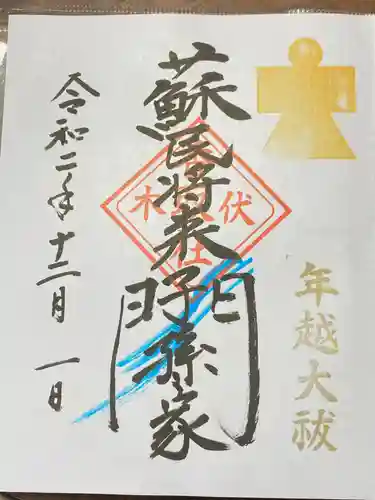 年越大祓
蘇民将来子孫之家門
令和二年十二月一日
伏木
社